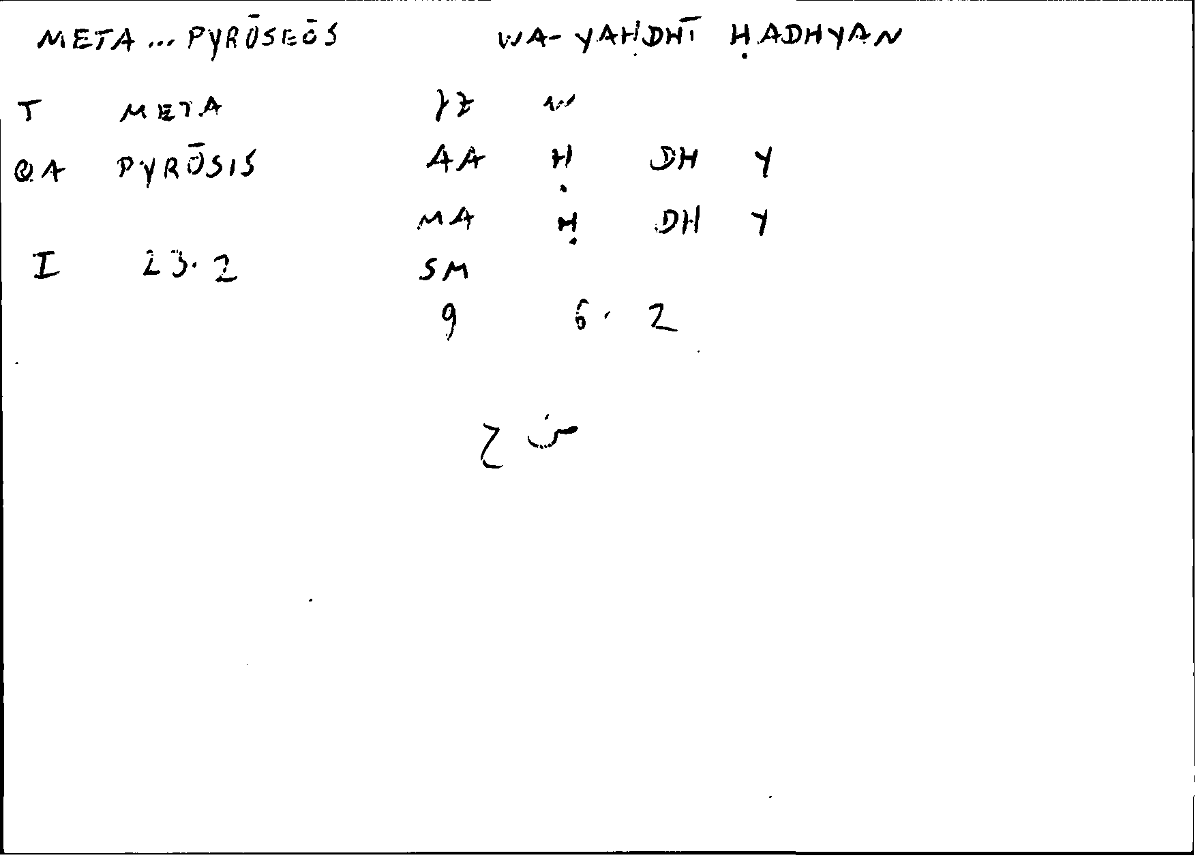 META ... PYRŌSEŌS WA-YAḤDHĪ ḤADHYAN
T META ZZ W
QA PYRŌSIS AA Ḥ DH Y
MA Ḥ DH Y
I 23.2 SM
9 6.2